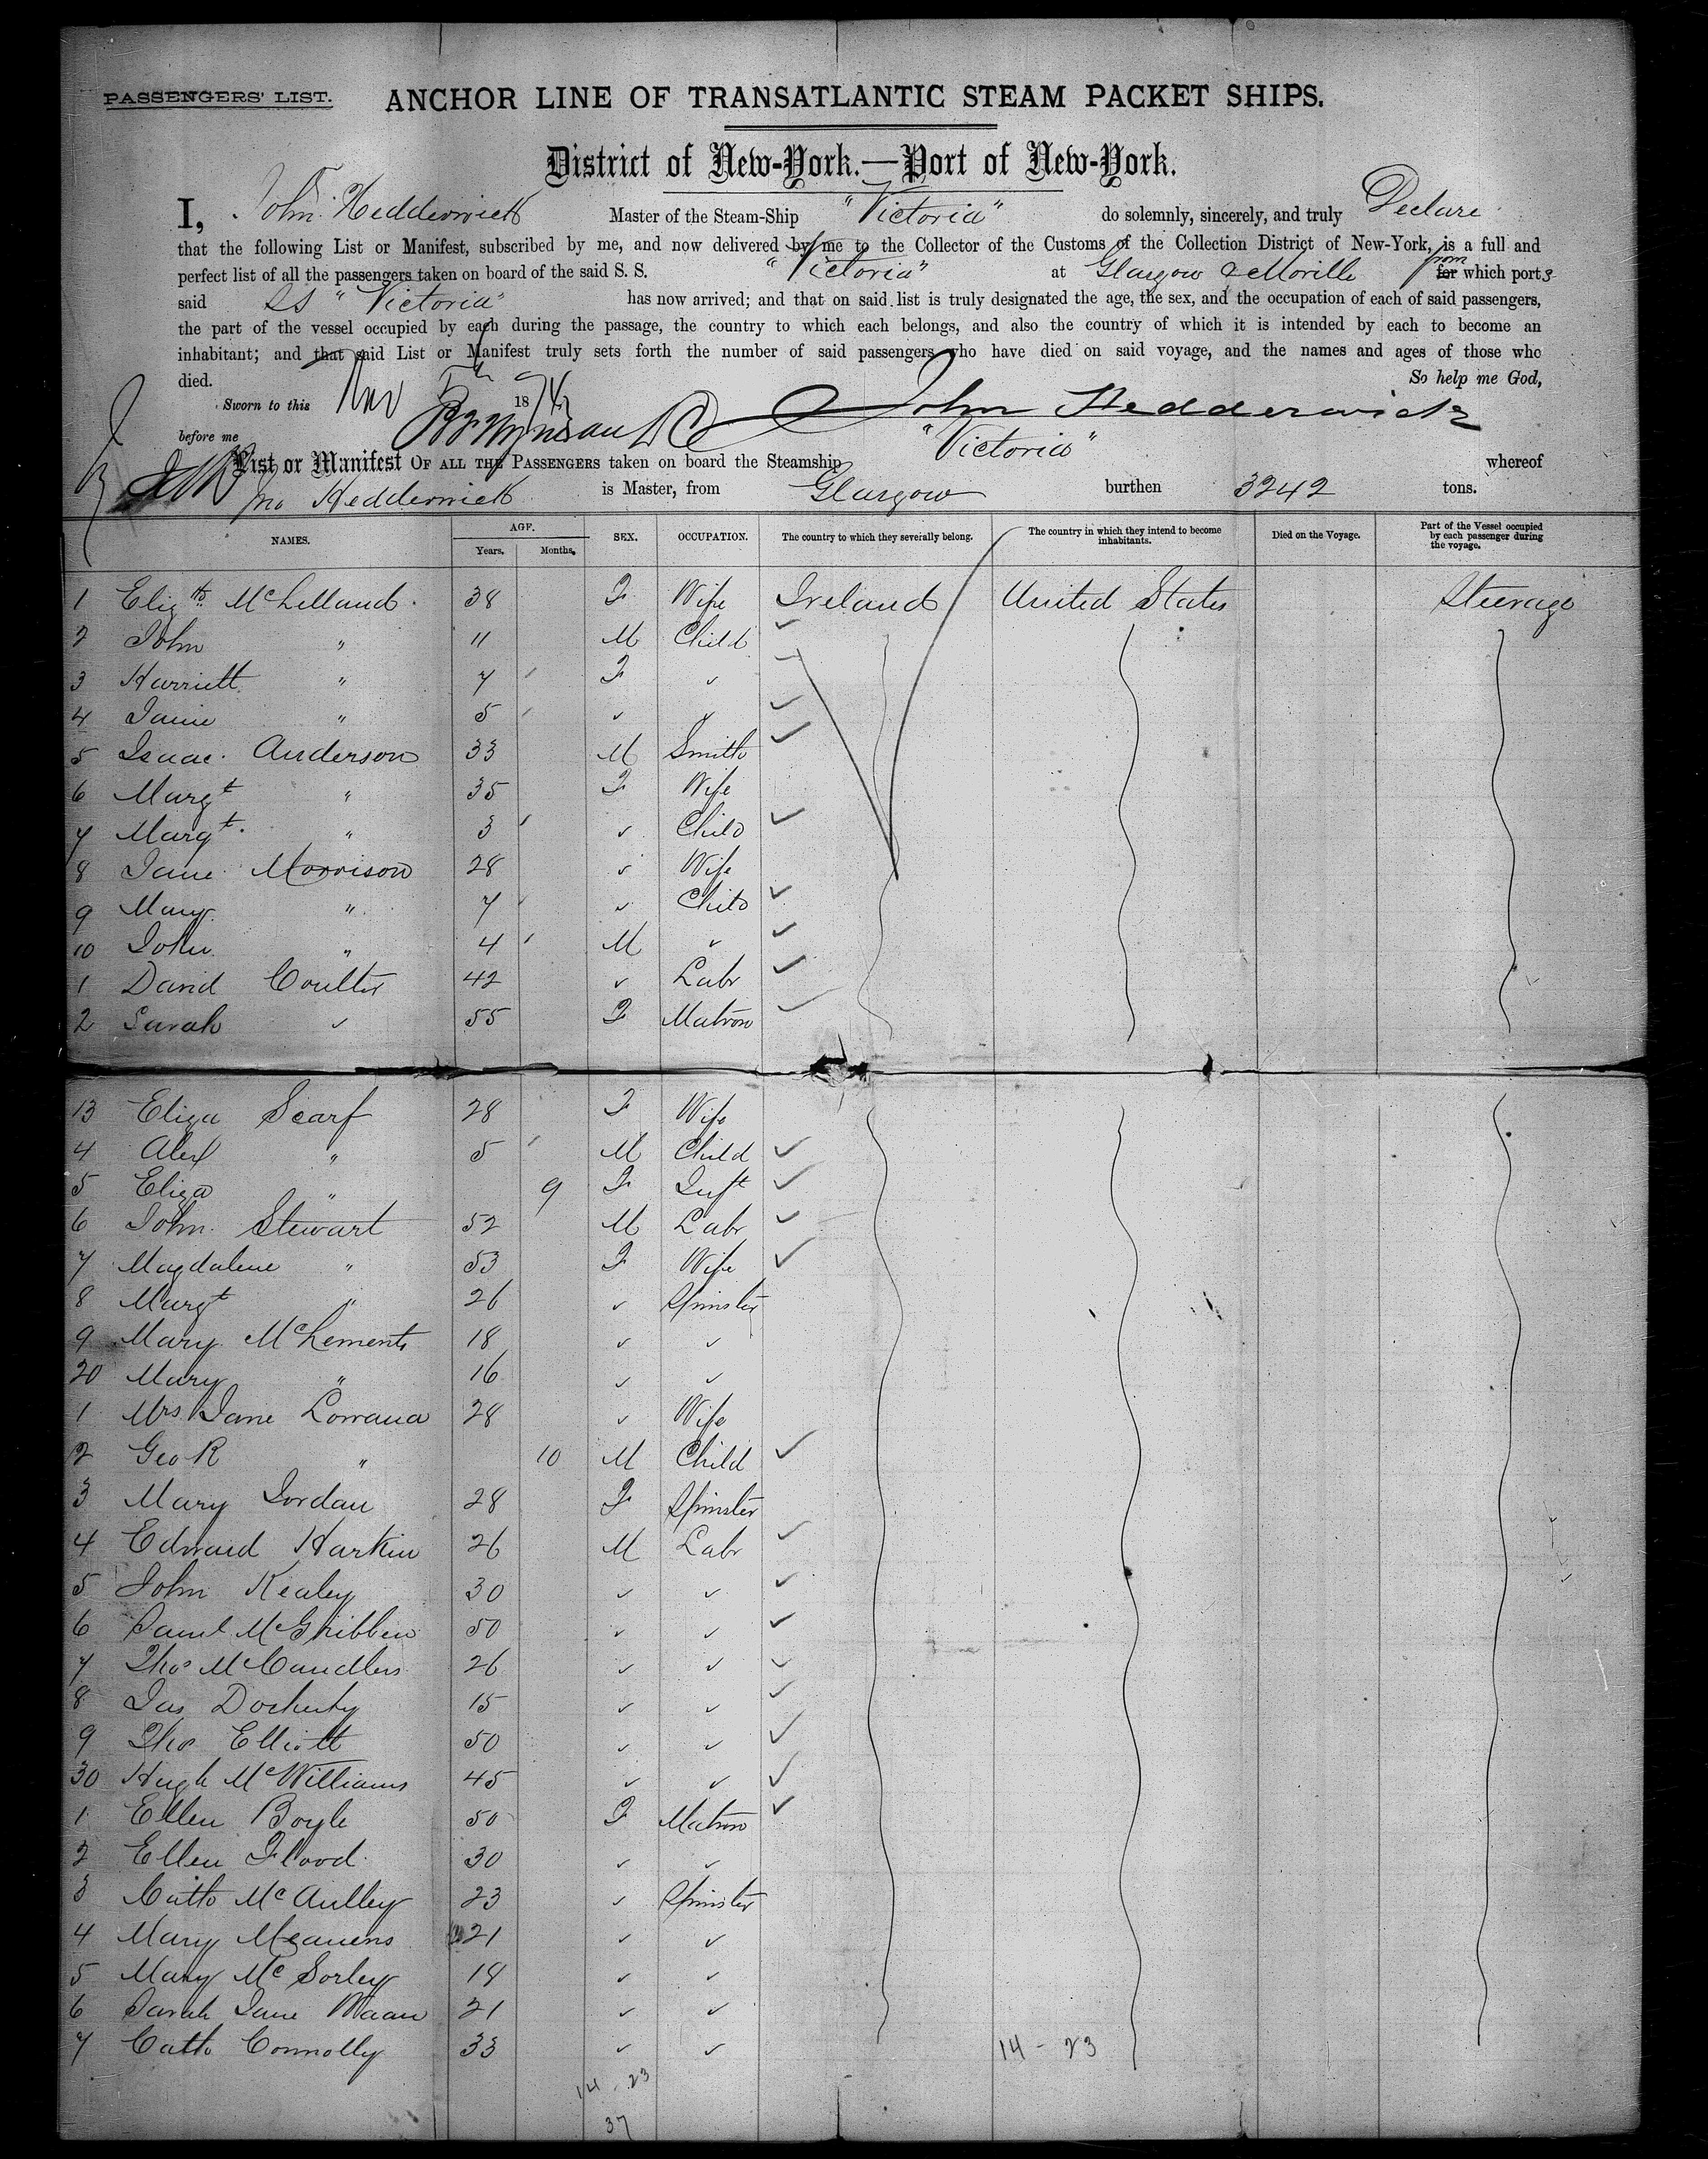 PASSENGERS' LIST. ANCHOR LINE OF TRANSATLANTIC STEAM PACKET SHIPS.
District of New-York.—Port of New-York.
I, John Hedderwick Master of the Steam-Ship "Victoria" do solemnly, sincerely, and truly Declare
that the following List or Manifest, subscribed by me, and now delivered by me to the Collector of the Customs of the Collection District of New-York, is a full and
perfect list of all the passengers taken on board of the said S. S. "Victoria" at Glasgow & Moville for from which ports
said SS "Victoria" has now arrived; and that on said list is truly designated the age, the sex, and the occupation of each of said passengers,
the part of the vessel occupied by each during the passage, the country to which each belongs, and also the country of which it is intended by each to become an
inhabitant; and that said List or Manifest truly sets forth the number of said passengers who have died on said voyage, and the names and ages of those who
died. So help me God,
Sworn to this Nov 5th 1874 John Hedderwick
before me
List or Manifest OF ALL THE PASSENGERS taken on board the Steamship "Victoria" whereof
Jno Hedderwick is Master, from Glasgow burthen 3242 tons.
NAMES. AGE. Years. Months. SEX. OCCUPATION. The country to which they severally belong. The country in which they intend to become inhabitants. Died on the Voyage. Part of the Vessel occupied by each passenger during the voyage.
1 Elizth McLelland 38 F Wife Ireland United States Steerage
2 John " 11 M Child ✓
3 Harriett " 7 F ✓
4 Janie " 5 ✓ ✓ ✓
5 Isaac Anderson 33 M Smith ✓
6 Margt " 35 F Wife
7 Margt " 3 ✓ Child ✓
8 Jane Morrison 28 ✓ Wife
9 Mary " 7 ✓ Child ✓
10 John " 4 M ✓ ✓
1 David Coulter 42 ✓ Labr ✓
2 Sarah ✓ 55 F Matron ✓
13 Eliza Scarf 28 F Wife
4 Alex " 5 M Child ✓
5 Eliza " 9 F Inft ✓
6 John Stewart 52 M Labr ✓
7 Magdalene " 53 F Wife ✓
8 Margt " 26 ✓ Spinster
9 Mary McLements 18 ✓ ✓
20 Mary " 16 ✓ ✓
1 Mrs Jane 28 ✓ Wife
2 Geo R " 10 M Child ✓
3 Mary Jordan 28 F Spinster
4 Edward Harkin 26 M Labr ✓
5 John Kealey 30 ✓ ✓ ✓
6 Saml McGribben 50 ✓ ✓ ✓
7 Thos McCandless 26 ✓ ✓ ✓
8 Jas Docherty 15 ✓ ✓ ✓
9 Thos Elliott 50 ✓ ✓ ✓
30 Hugh McWilliams 45 ✓ ✓ ✓
1 Ellen Boyle 50 F Matron ✓
2 Ellen Flood 30 ✓ ✓
3 Cathe McAulley 23 ✓ Spinster
4 Mary 21 ✓ ✓
5 Mary McSorley 18 ✓ ✓
6 Sarah Jane 21 ✓ ✓
7 Cathe Connolly 33 ✓ ✓ 14 - 23
14 - 23
37